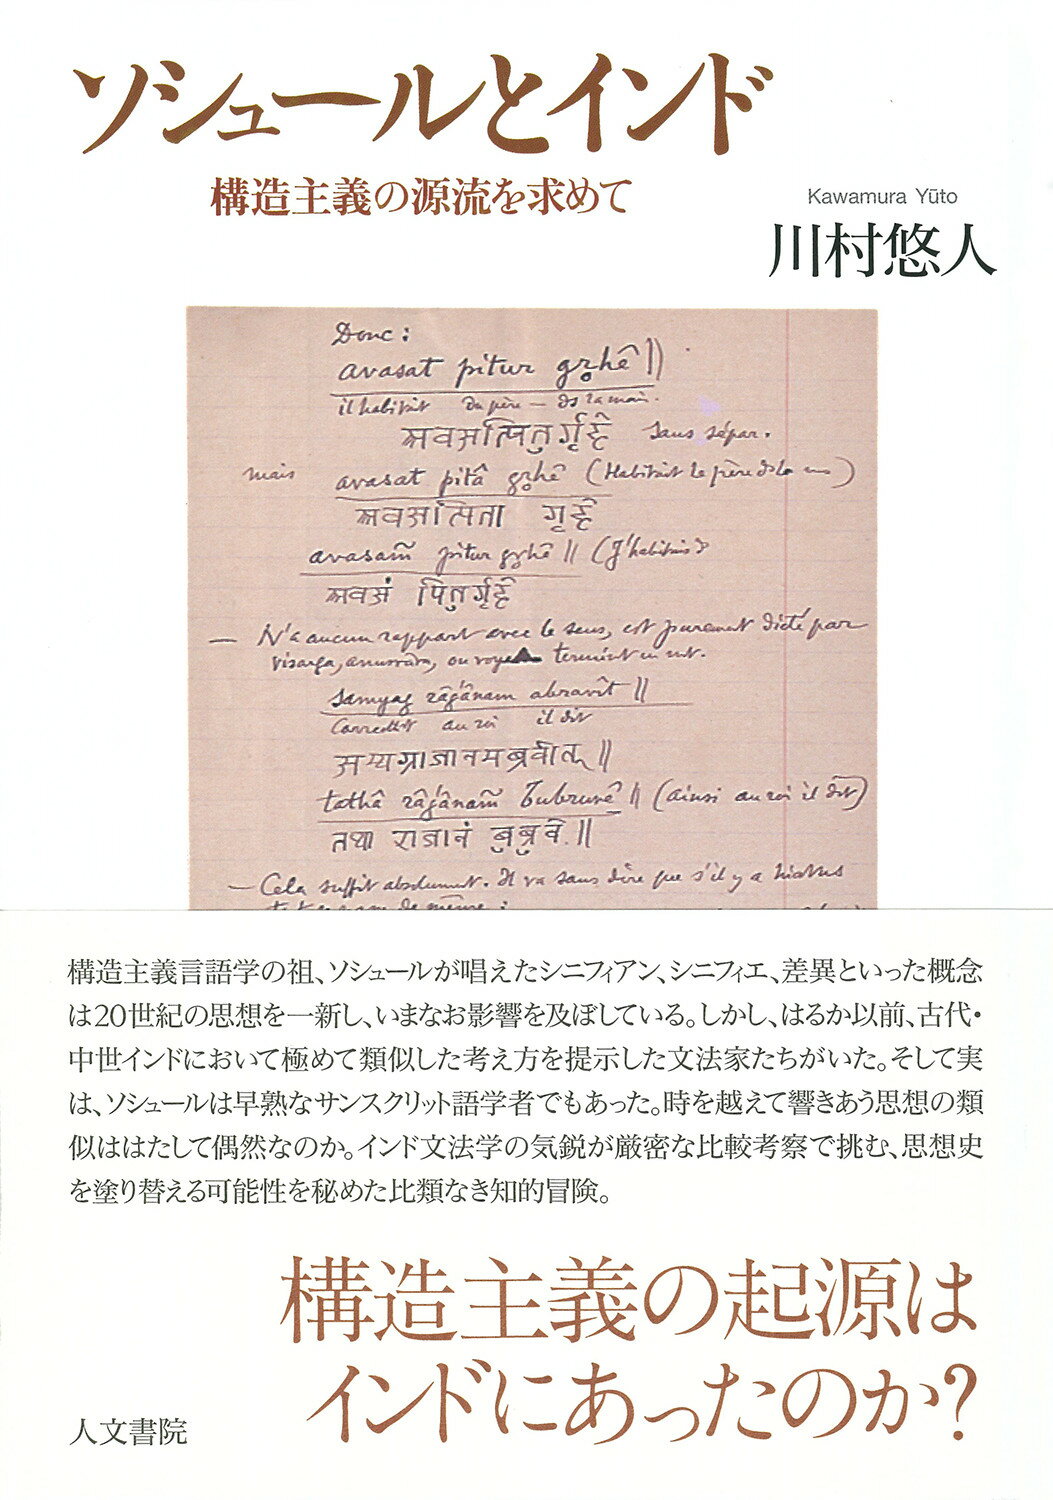 ソシュールとインド
構造主義の源流を求めて
Kawamura Yūto
川村悠人
Donc :
avasat pitur gr̥hê ||
il habitait du père – ds la mais.
अवसत्पितुर्गृहे sans sépar.
mais avasat pitâ gr̥hê (Habitait le père ds la)
अवसत्पिता गृहे
avasam̃ pitur gr̥hê || (J'habitais
अवसं पितुर्गृहे
— N'a aucun rapport avec le sens, est purement dicté par
visarga, anusvâra, ou
samyag râg'ânam abravît ||
au roi il dit
सम्यग्राजानमब्रवीत् ||
tathâ râg'ânam̃ bubruvê || (ainsi au roi il dit)
तथा राजानं बुब्रुवे ||
— Cela suffit absolument. Il va sans dire que s'il y a hiatus
de même :
構造主義言語学の祖、ソシュールが唱えたシニフィアン、シニフィエ、差異といった概念
は20世紀の思想を一新し、いまなお影響を及ぼしている。しかし、はるか以前、古代・
中世インドにおいて極めて類似した考え方を提示した文法家たちがいた。そして実
は、ソシュールは早熟なサンスクリット語学者でもあった。時を越えて響きあう思想の類
似ははたして偶然なのか。インド文法学の気鋭が厳密な比較考察で挑む、思想史
を塗り替える可能性を秘めた比類なき知的冒険。
構造主義の起源は
インドにあったのか?
人文書院